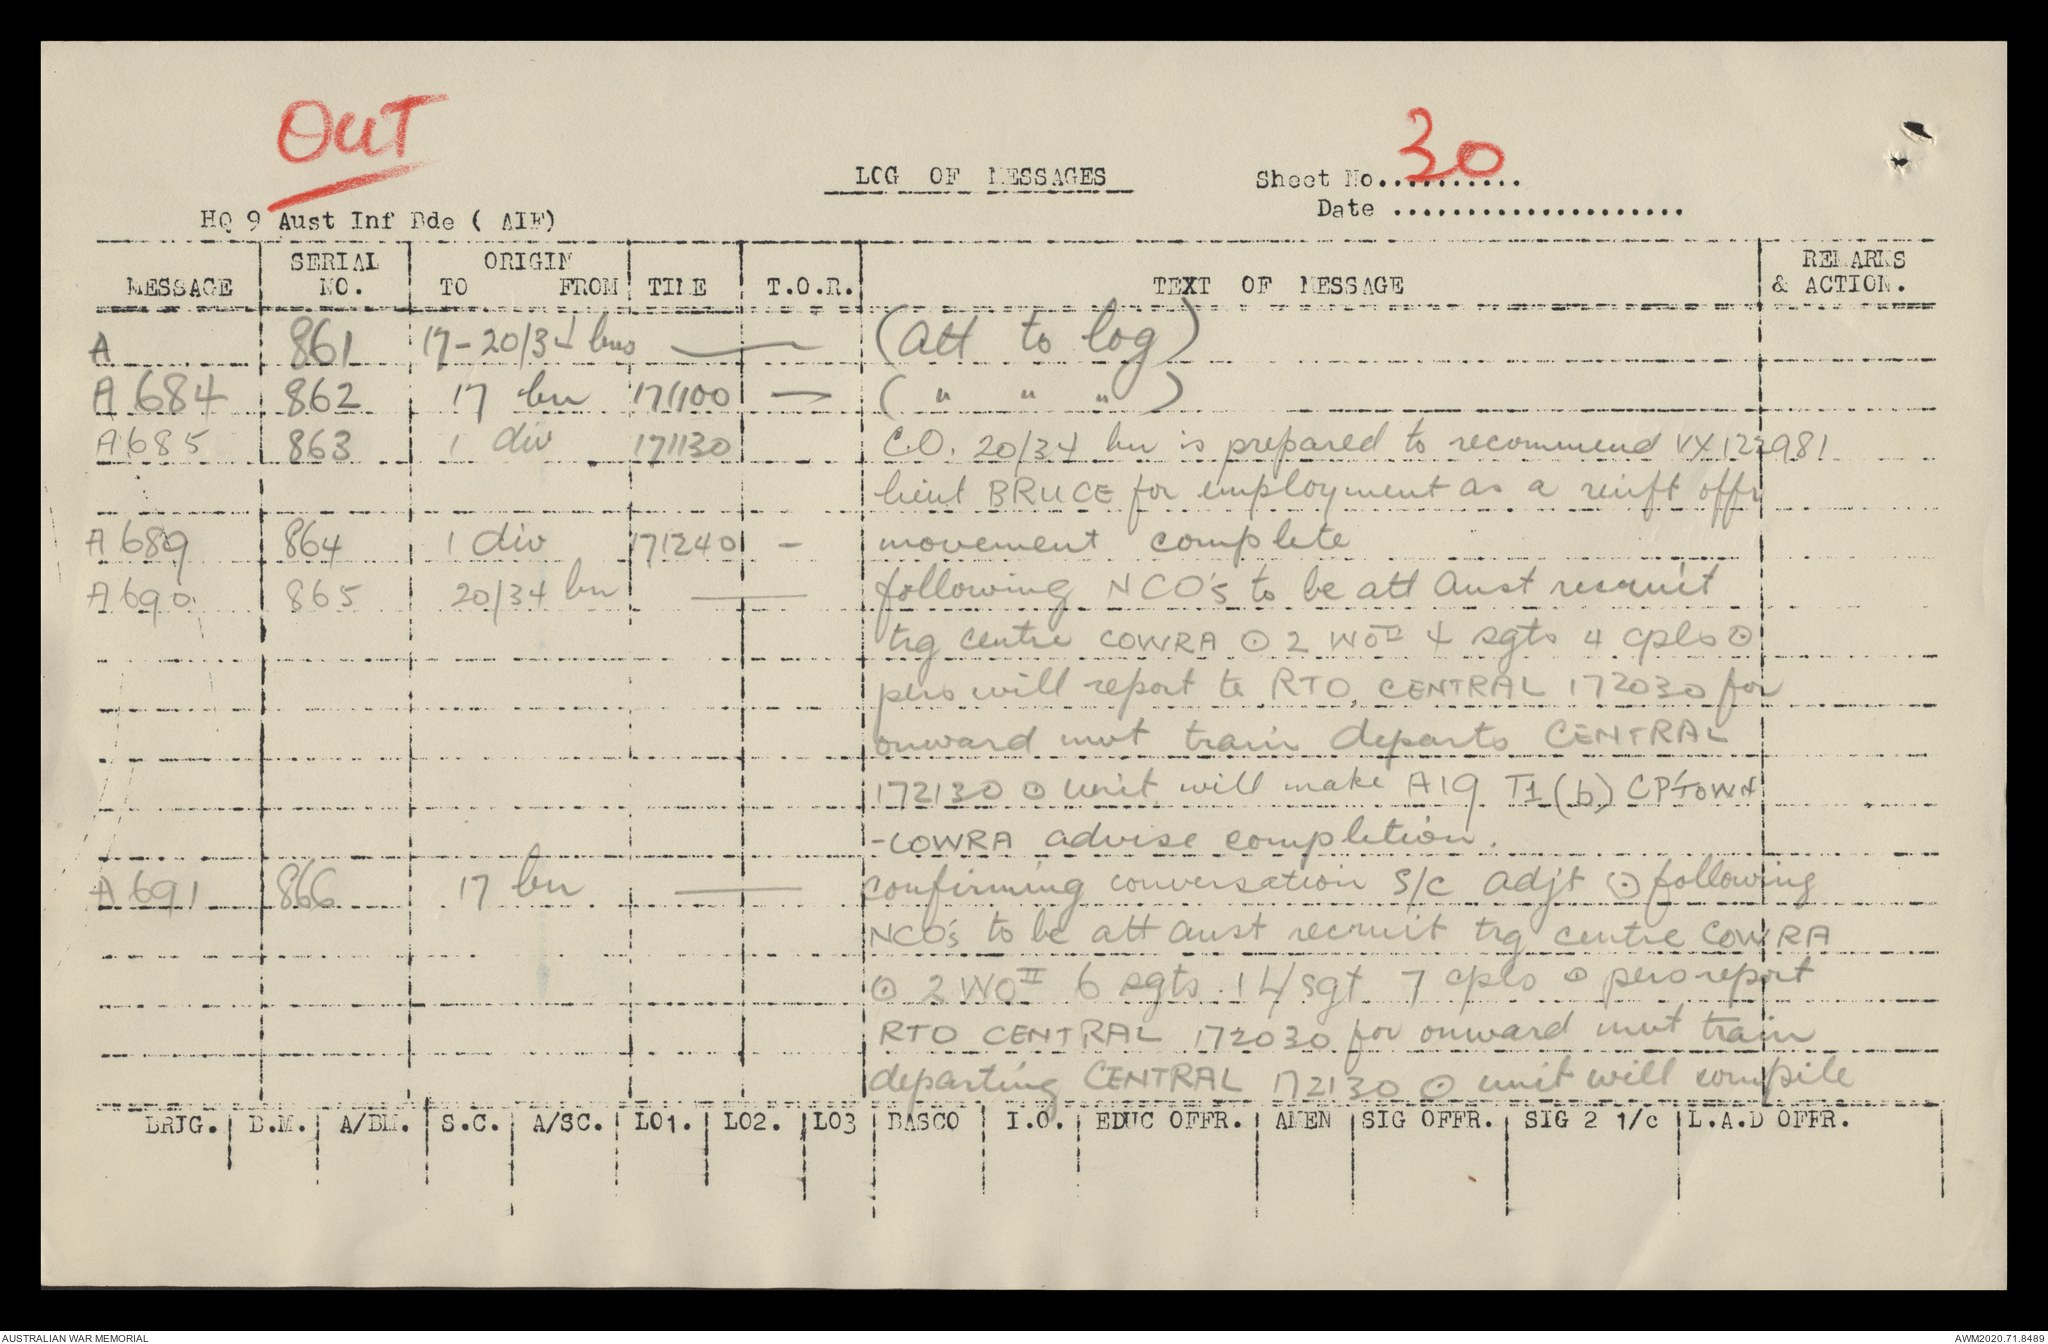 OUT
LOG OF MESSAGES
Sheet No. 30
Date ....................
HQ 9 Aust Inf Bde ( AIF)
MESSAGE SERIAL NO. ORIGIN TO FROM TIME T.O.R. TEXT OF MESSAGE REMARKS & ACTION.
A 861 17-20/34 bns — (att to log)
A684 862 17 bn 171100 — ( " " " )
A685 863 1 div 171130 C.O. 20/34 bn is prepared to recommend VX122981
lieut BRUCE for employment as a reinft offr
A689 864 1 div 171240 - movement complete
A690 865 20/34 bn — following NCO's to be att aust recruit
trg centre COWRA ⊙ 2 WOII 4 sgts 4 cpls ⊙
pers will report to RTO, CENTRAL 172030 for
onward mvt train departs CENTRAL
172130 ⊙ unit will make A19 T1(b) CP'TOWN
-COWRA advise completion.
A691 866 17 bn — confirming conversation S/C adjt ⊙ following
NCO's to be att aust recruit trg centre COWRA
⊙ 2 WOII 6 sgts. 1 L/sgt 7 cpls ⊙ pers report
RTO CENTRAL 172030 for onward mvt train
departing CENTRAL 172130 ⊙ unit will compile
BRIG. B.M. A/BM. S.C. A/SC. LO1. LO2. LO3 BASCO I.O. EDUC OFFR. AMEN SIG OFFR. SIG 2 1/c L.A.D OFFR.
AUSTRALIAN WAR MEMORIAL
AWM2020.71.8489